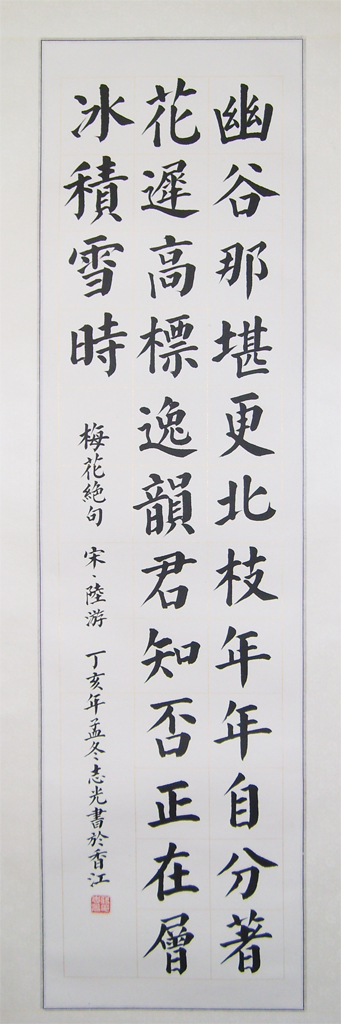 幽谷那堪更北枝年年自分著
花遲高標逸韻君知否正在層
冰積雪時
梅花絕句 宋、陸游 丁亥年孟冬志光書於香江